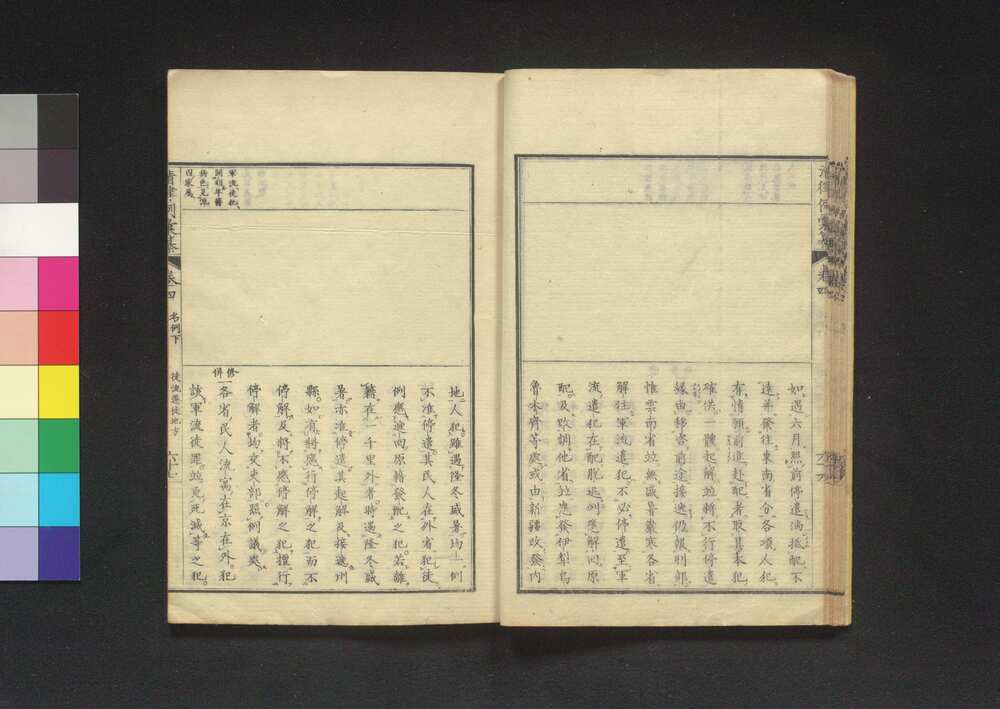 如遇六月照前停遣淌抵配不
遠並發往東南省分各項人犯
有情願前進赴配者取其本犯
確供一體起解並將不行停遣
緣由移咨前途接逓仍報刑部
惟雲南省並無盛暑嚴寒各省
解往軍流遣犯不必停遣至軍
流遣犯在配脫逃例應解回原
配及改調他省並應發伊犁烏
魯木齊等處或由新疆改發內
地人犯雖遇隆冬盛暑均一例
不准停遣其民人在外省犯徒
例應逓回原籍發配之犯若離
籍在一千里外者時遇隆冬盛
暑亦准停遣其起解及接遞州
縣如有將應行停解之犯而不
停解及將不應停解之犯擅行
停解者均交吏部照例議處
修併
一各省民人流寓在京在外犯
該軍流徒罪並免死減等之犯
軍流徒犯
開明年籍
卷四
名例下
徒流遷徙地方